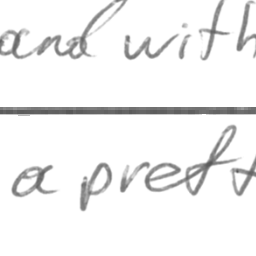 and with
a prett